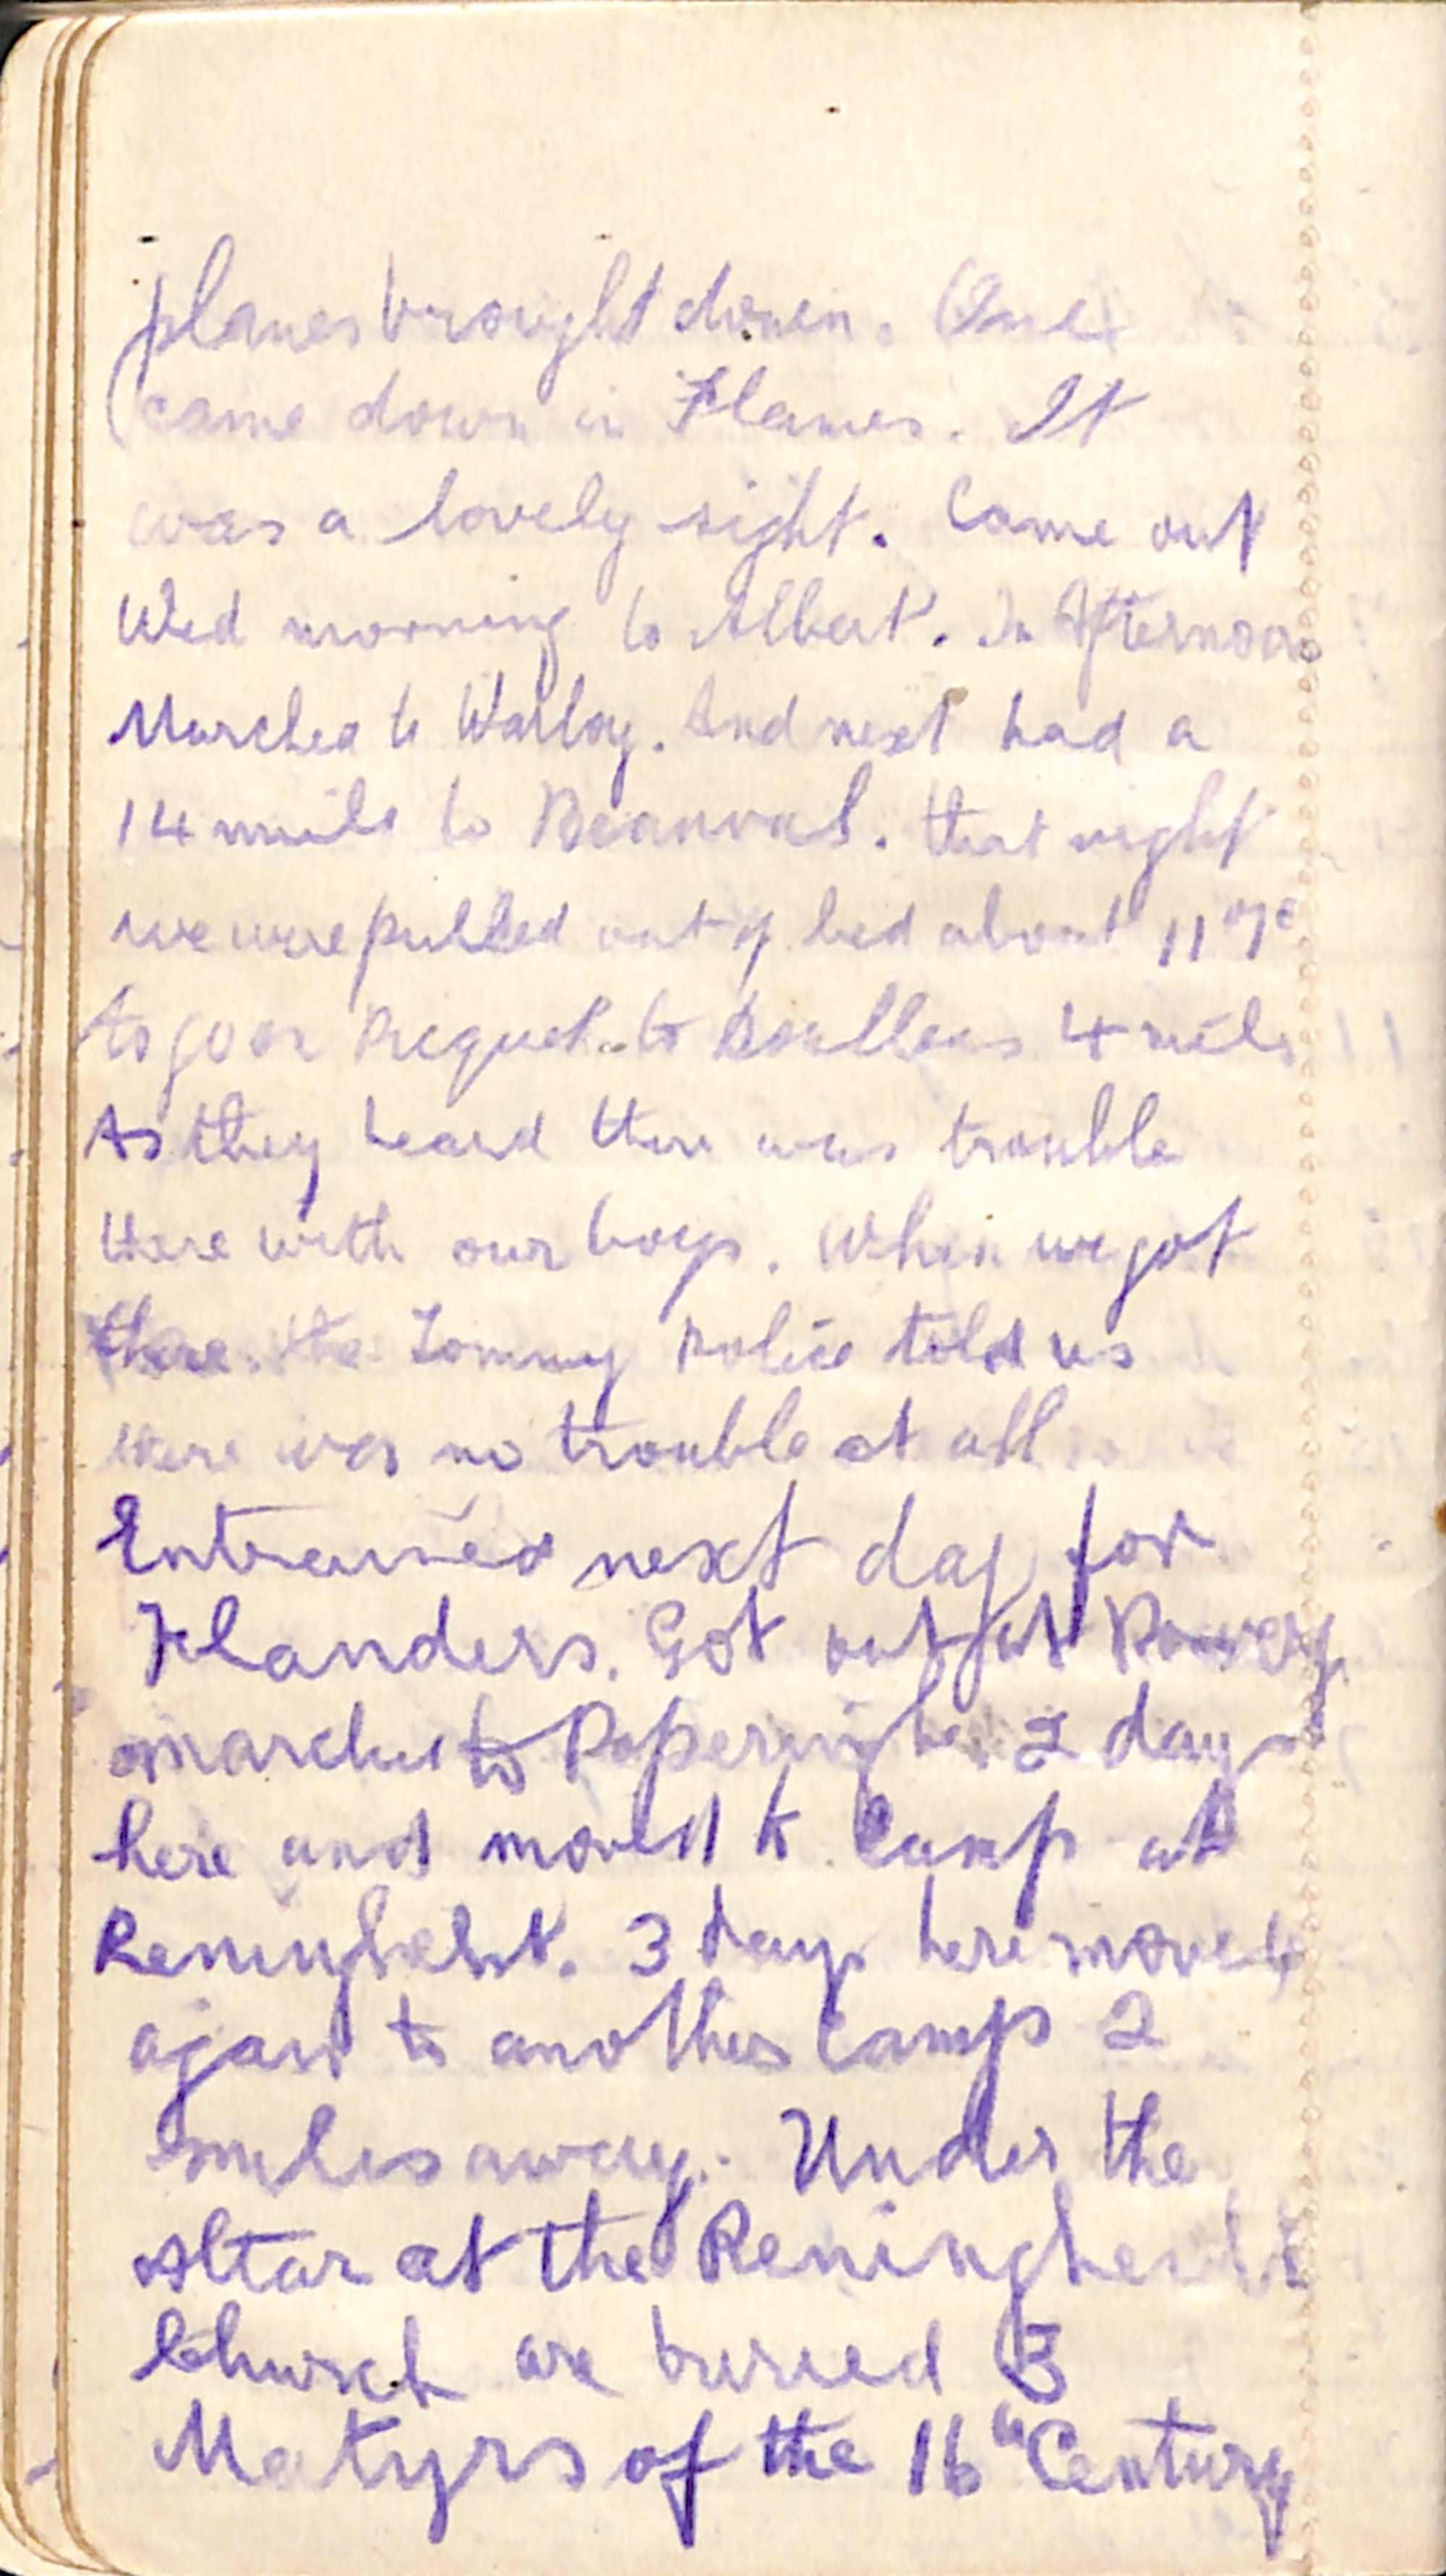 planes brought down. One
came down in Flames. It
was a lovely sight. Came out
Wed morning to Albert. In Afternoon
Marched to Warloy. And next had a
14 mile to Beauval. that night
we were pulled out of bed about 11 oc
to go on Picquet to Doullens 4 miles
As they heard there was trouble
there with our boys. When we got
there the Tommy Police told us
there was no trouble at all
Entrained next day for
Flanders. Got out at
marched to Poperinghe. 2 days
here and moved to Camp at
Reninghelst. 3 days here moved
again to another Camp 2
miles away. Under the
Altar at the Reninghelst
Church are buried 3
Matyrs of the 16th Century